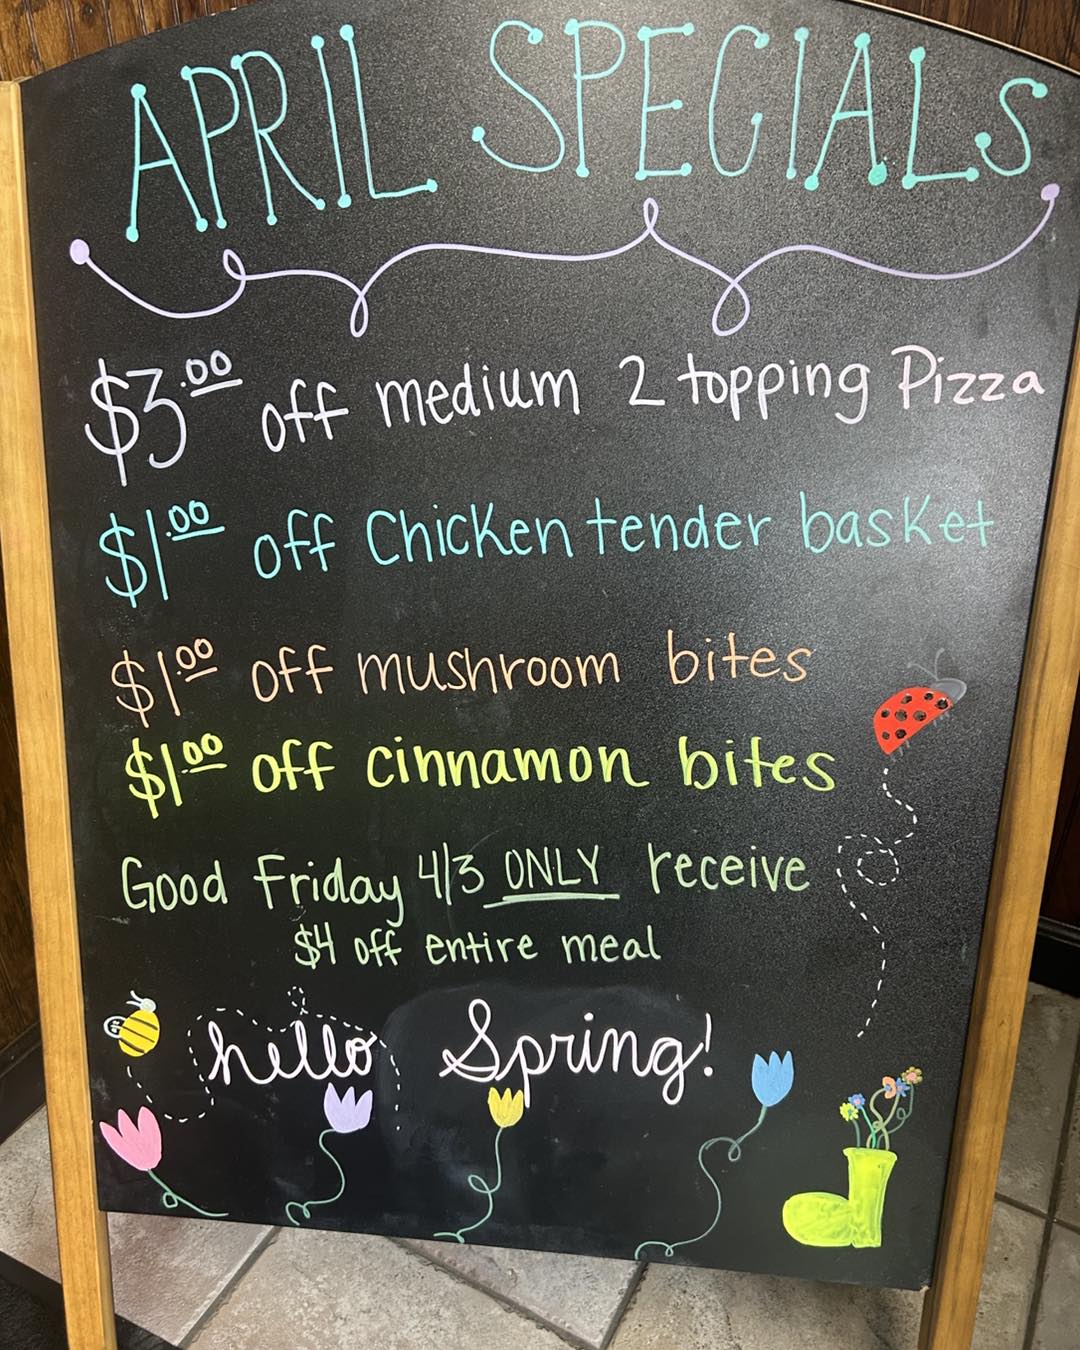 APRIL SPECIALS
$3.00 off medium 2 topping Pizza
$1.00 off Chicken tender basket
$1.00 off mushroom bites
$1.00 off cinnamon bites
Good Friday 4/3 ONLY receive
$4 off entire meal
hello Spring!